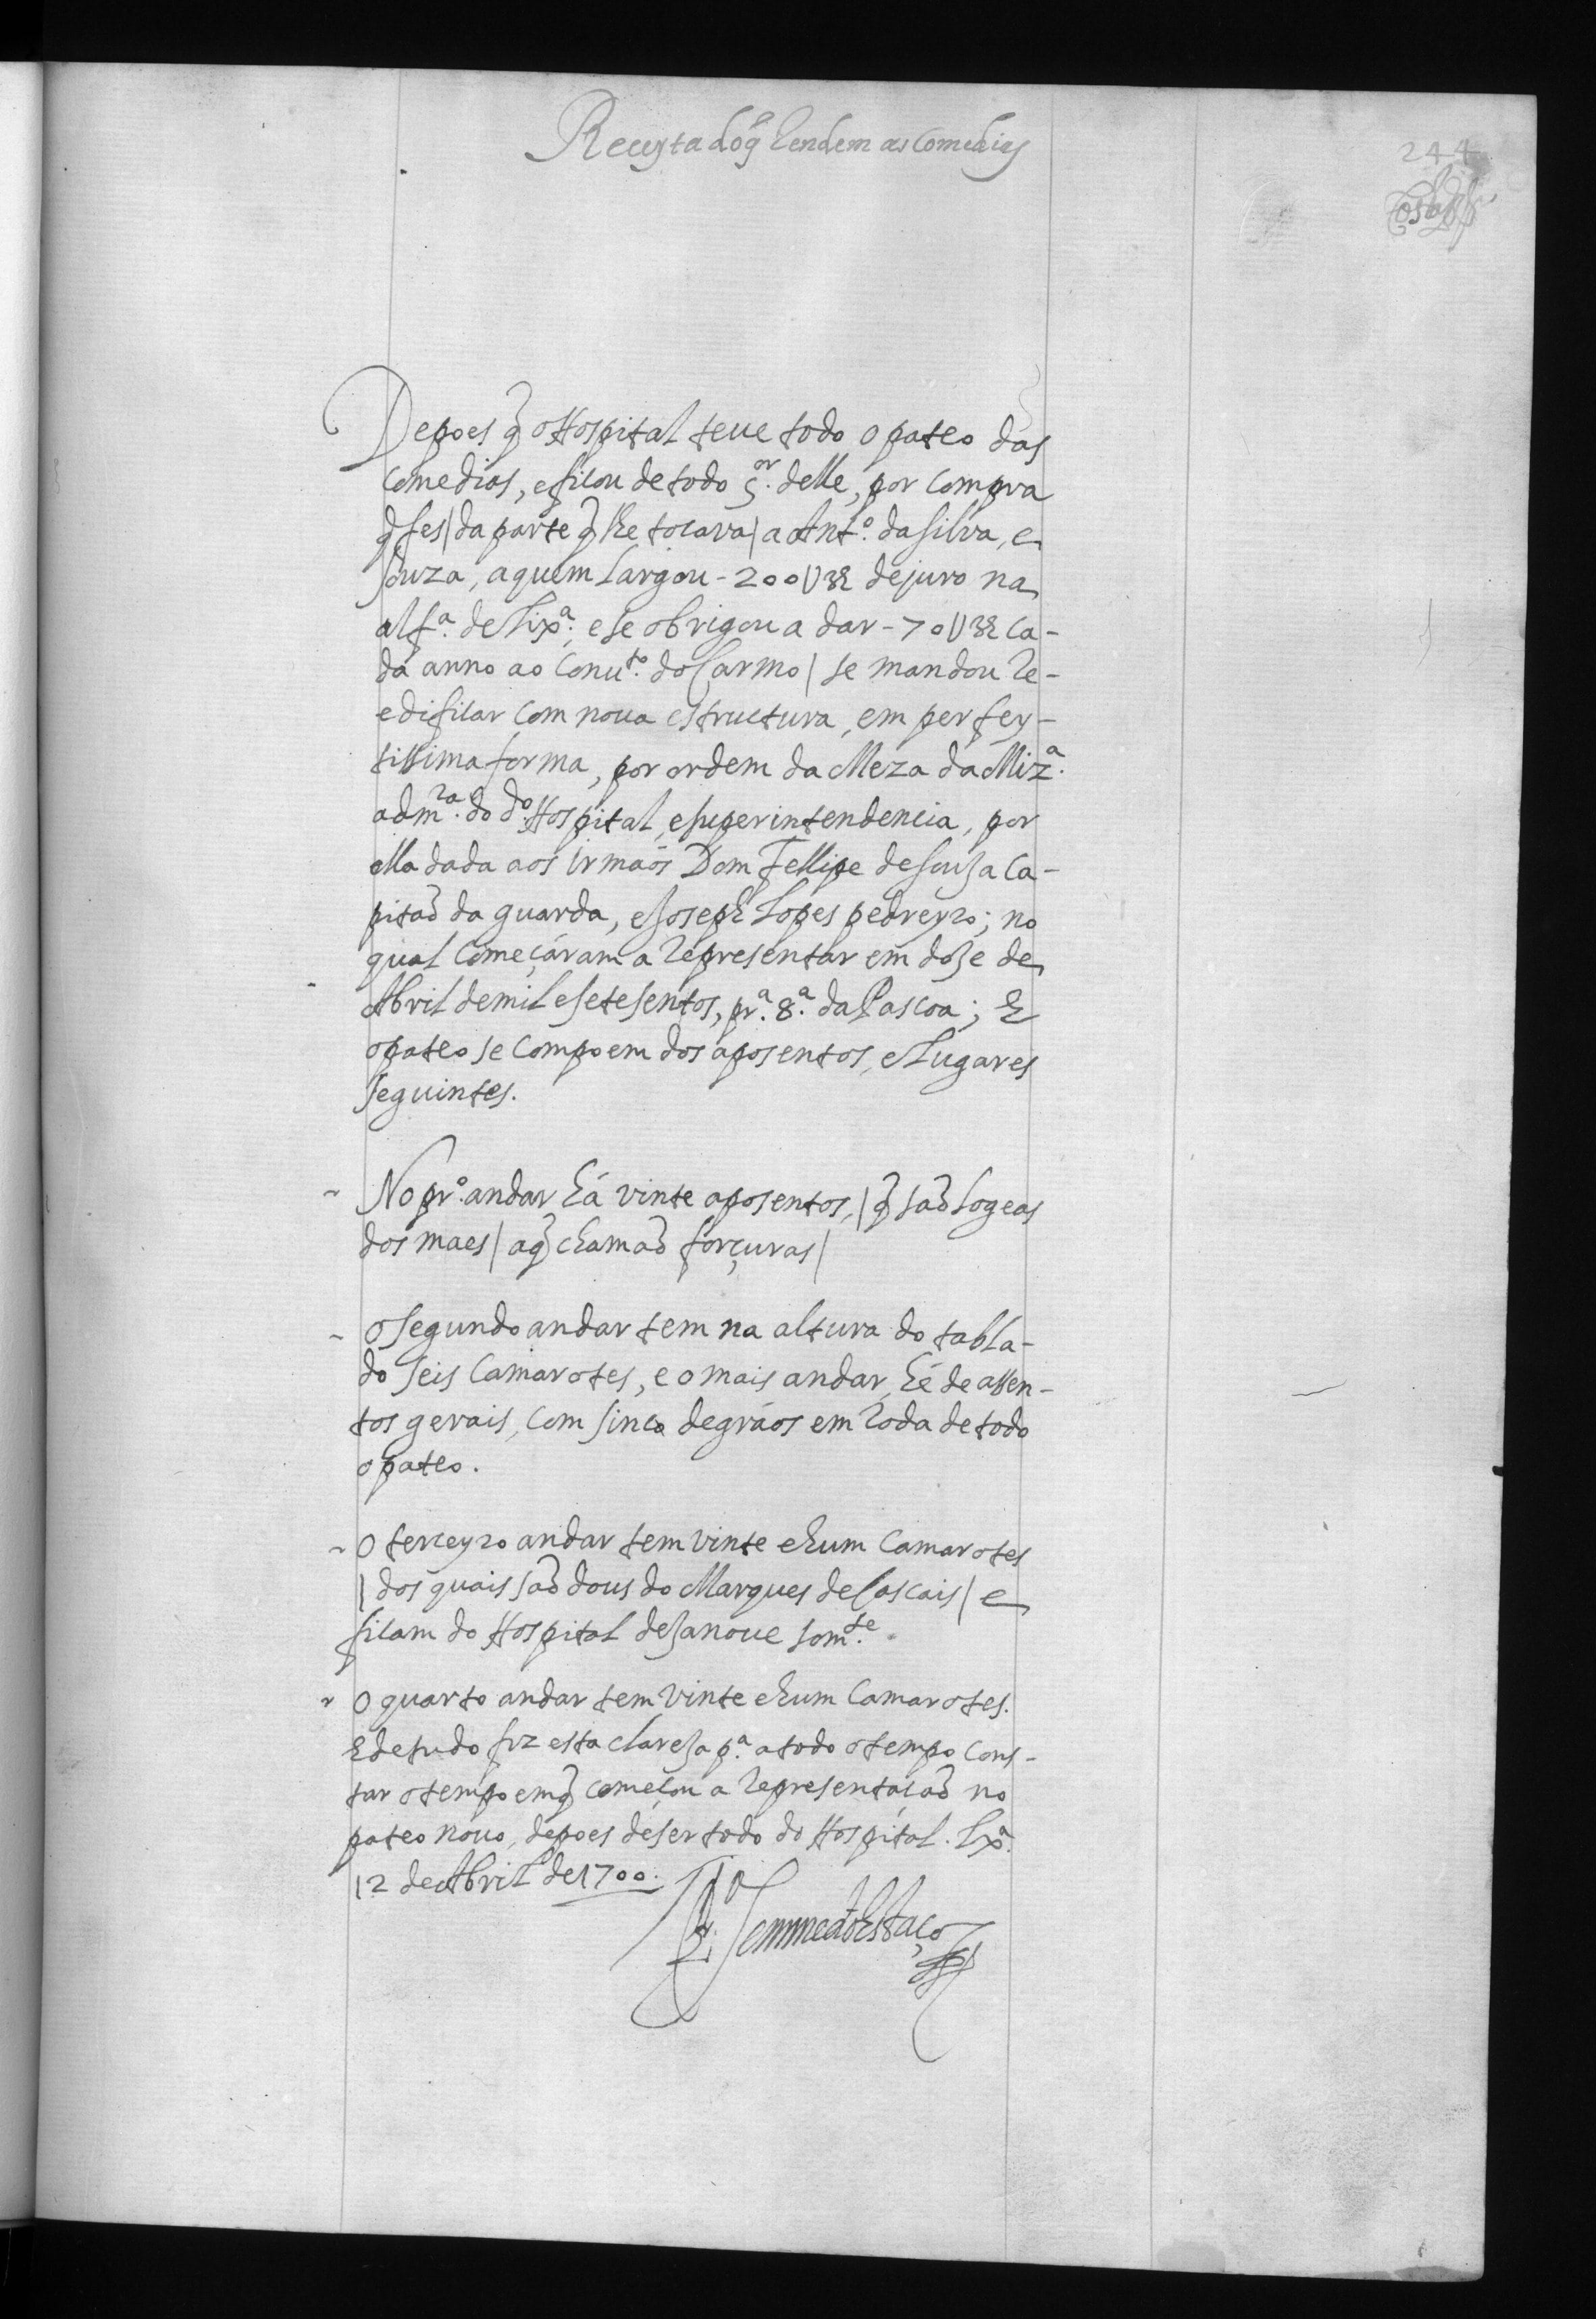 Receyta do q̃ Rendem as Comedias
244
Costa
Depoes q̃ o Hospital teue todo o pateo das
Comedias, e ficou de todo s.or delle, por Compra
q̃ fes | da parte q̃ lhe tocava | a Ant.º da Silva, e
Souza, a quem largou - 200U rs de juro na
alf.ª de Lix.ª, e se obrigou a dar - 70U rs ca-
da anno ao Conu.to do Carmo | se mandou Re-
edificar Com noua estructura, em perfey-
tissima forma, por ordem da Meza da Miz.ª
adm.ra do d.º Hospital, e superintendencia, por
ella dada aos Irmaõs Dom Fellipe de Souza Ca-
pitaõ da guarda, e Joseph Lopes pedreyro; no
qual Começáram a Representar em doze de
Abril de mil e setesentos, pr.ª 8.ª da Pascoa; E
o pateo se Compoem dos aposentos, e Lugares
seguintes.
No pr.º andar há vinte aposentos, | q̃ saõ Logeas
dos maes | a q̃ chamaõ forçuras |
O segundo andar tem na altura do tabla-
do seis Camarotes, e o mais andar, hé de assen-
tos gerais, Com sinco degráos em Roda de todo
o pateo.
O terceyro andar tem vinte e hum Camarotes
| dos quais saõ dous do Marques de Cascais | e
ficam do Hospital dezanoue som.te
O quarto andar tem vinte e hum Camarotes.
E de tudo fiz esta clareza p.ª a todo o tempo Cons-
tar o tempo em q̃ começou a Representáçaõ no
pateo nouo, depoes de ser todo do Hospital. Lx.ª
12 de Abril de 1700.
Estaço